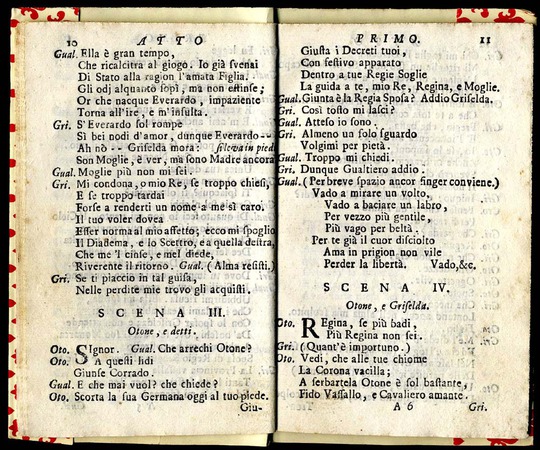 10 ATTO
Gual. Ella è gran tempo,
Che ricalcitra al giogo. Io già svenai
Di Stato alla ragion l'amata Figlia.
Gli odj alquanto sopì, ma non estinse;
Or che nacque Everardo, impaziente
Torna all'ire, e m'insulta.
Gri. S'Everardo sol rompe
I bei nodi d'amor, dunque Everardo --
Ah nò -- Griselda mora: si leva in piedi
Son Moglie, è ver, ma sono Madre ancora
Gual. Moglie più non mi sei.
Gri. Mi condona, o mio Re, se troppo chiesi,
E se troppo tardai
Forse a renderti un nome a me sì caro.
Il tuo voler dovea
Esser norma al mio affetto; ecco mi spoglio
Il Diadema, e lo Scettro, e a quella destra,
Che me 'l cinse, e mel diede,
Riverente il ritorno. Gual. (Alma resisti.)
Gri. Se ti piaccio in tal guisa,
Nelle perdite mie trovo gli acquisti.
SCENA III.
Otone, e detti.
Oto. SIgnor. Gual. Che arrechi Otone?
Oto. A questi lidi
Giunse Corrado.
Gual. E che mai vuol? che chiede?
Oto. Scorta la sua Germana oggi al tuo piede.
Giu-
PRIMO. 11
Giusta i Decreti tuoi,
Con festivo apparato
Dentro a tue Regie Soglie
La guida a te, mio Re, Regina, e Moglie.
Gual. Giunta è la Regia Sposa? Addio Griselda.
Gri. Così tosto mi lasci?
Gual. Atteso io sono.
Gri. Almeno un solo sguardo
Volgimi per pietà.
Gual. Troppo mi chiedi.
Gri. Dunque Gualtiero addio.
Gual. (Per breve spazio ancor finger conviene.)
Vado a mirare un volto,
Vado a baciare un labro,
Per vezzo più gentile,
Più vago per beltà.
Per te già il cuor disciolto
Ama in prigion non vile
Perder la libertà. Vado,&c.
SCENA IV.
Otone, e Griselda.
Oto. REgina, se più badi,
Più Regina non sei.
Gri. (Quant'è importuno.)
Oto. Vedi, che alle tue chiome
La Corona vacilla;
A serbartela Otone è sol bastante,
Fido Vassallo, e Cavaliero amante.
A 6 Gri.